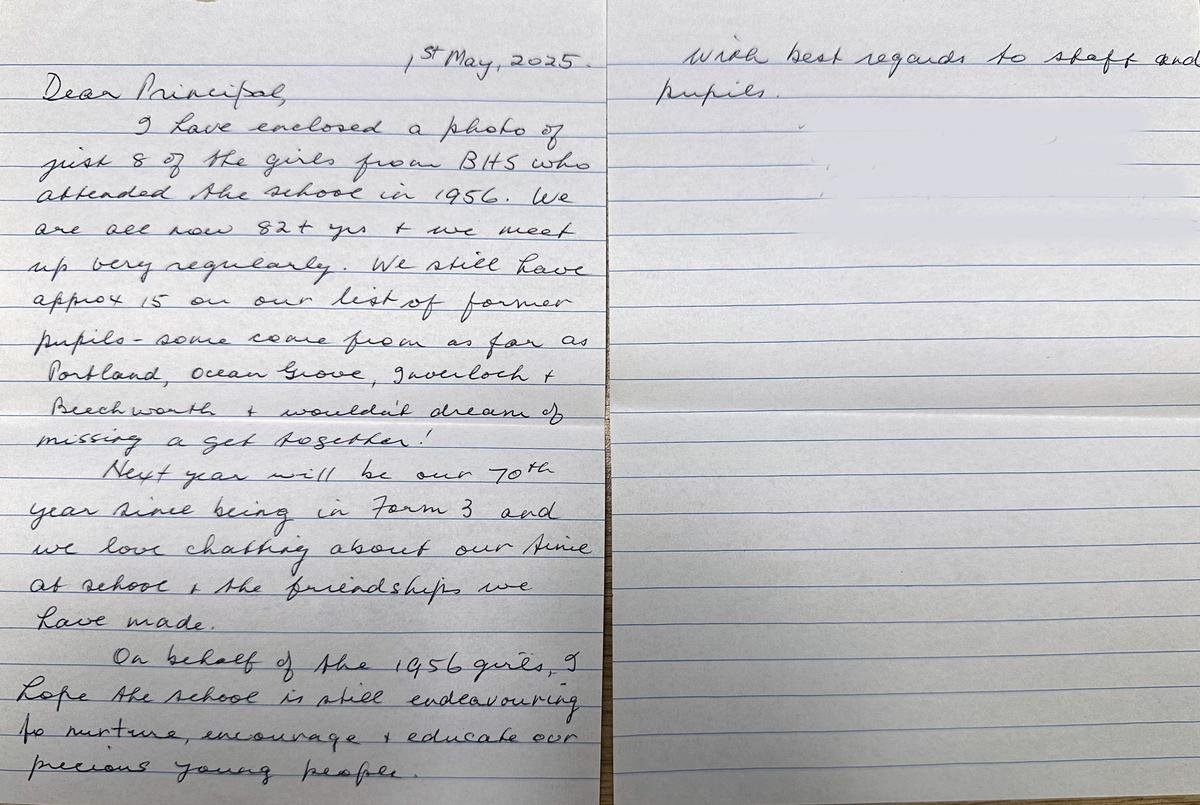 1st May, 2025.
Dear Principal,
I have enclosed a photo of
just 8 of the girls from BHS who
attended the school in 1956. We
are all now 82+ yrs + we meet
up very regularly. We still have
approx 15 on our list of former
pupils - some come from as far as
Portland, Ocean Grove, Inverloch +
Beechworth + wouldn't dream of
missing a get together!
Next year will be our 70th
year since being in Form 3 and
we love chatting about our time
at school + the friendships we
have made.
On behalf of the 1956 girls, I
hope the school is still endeavouring
to nurture, encourage + educate our
precious young people.
With best regards to staff and
pupils.